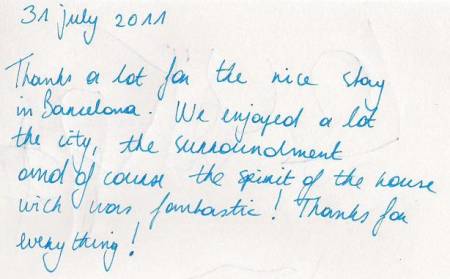 31 july 2011
Thanks a lot for the nice stay
in Barcelona. We enjoyed a lot
the city, the surroundment
and of course the spirit of the house
wich was fantastic! Thanks for
everything!